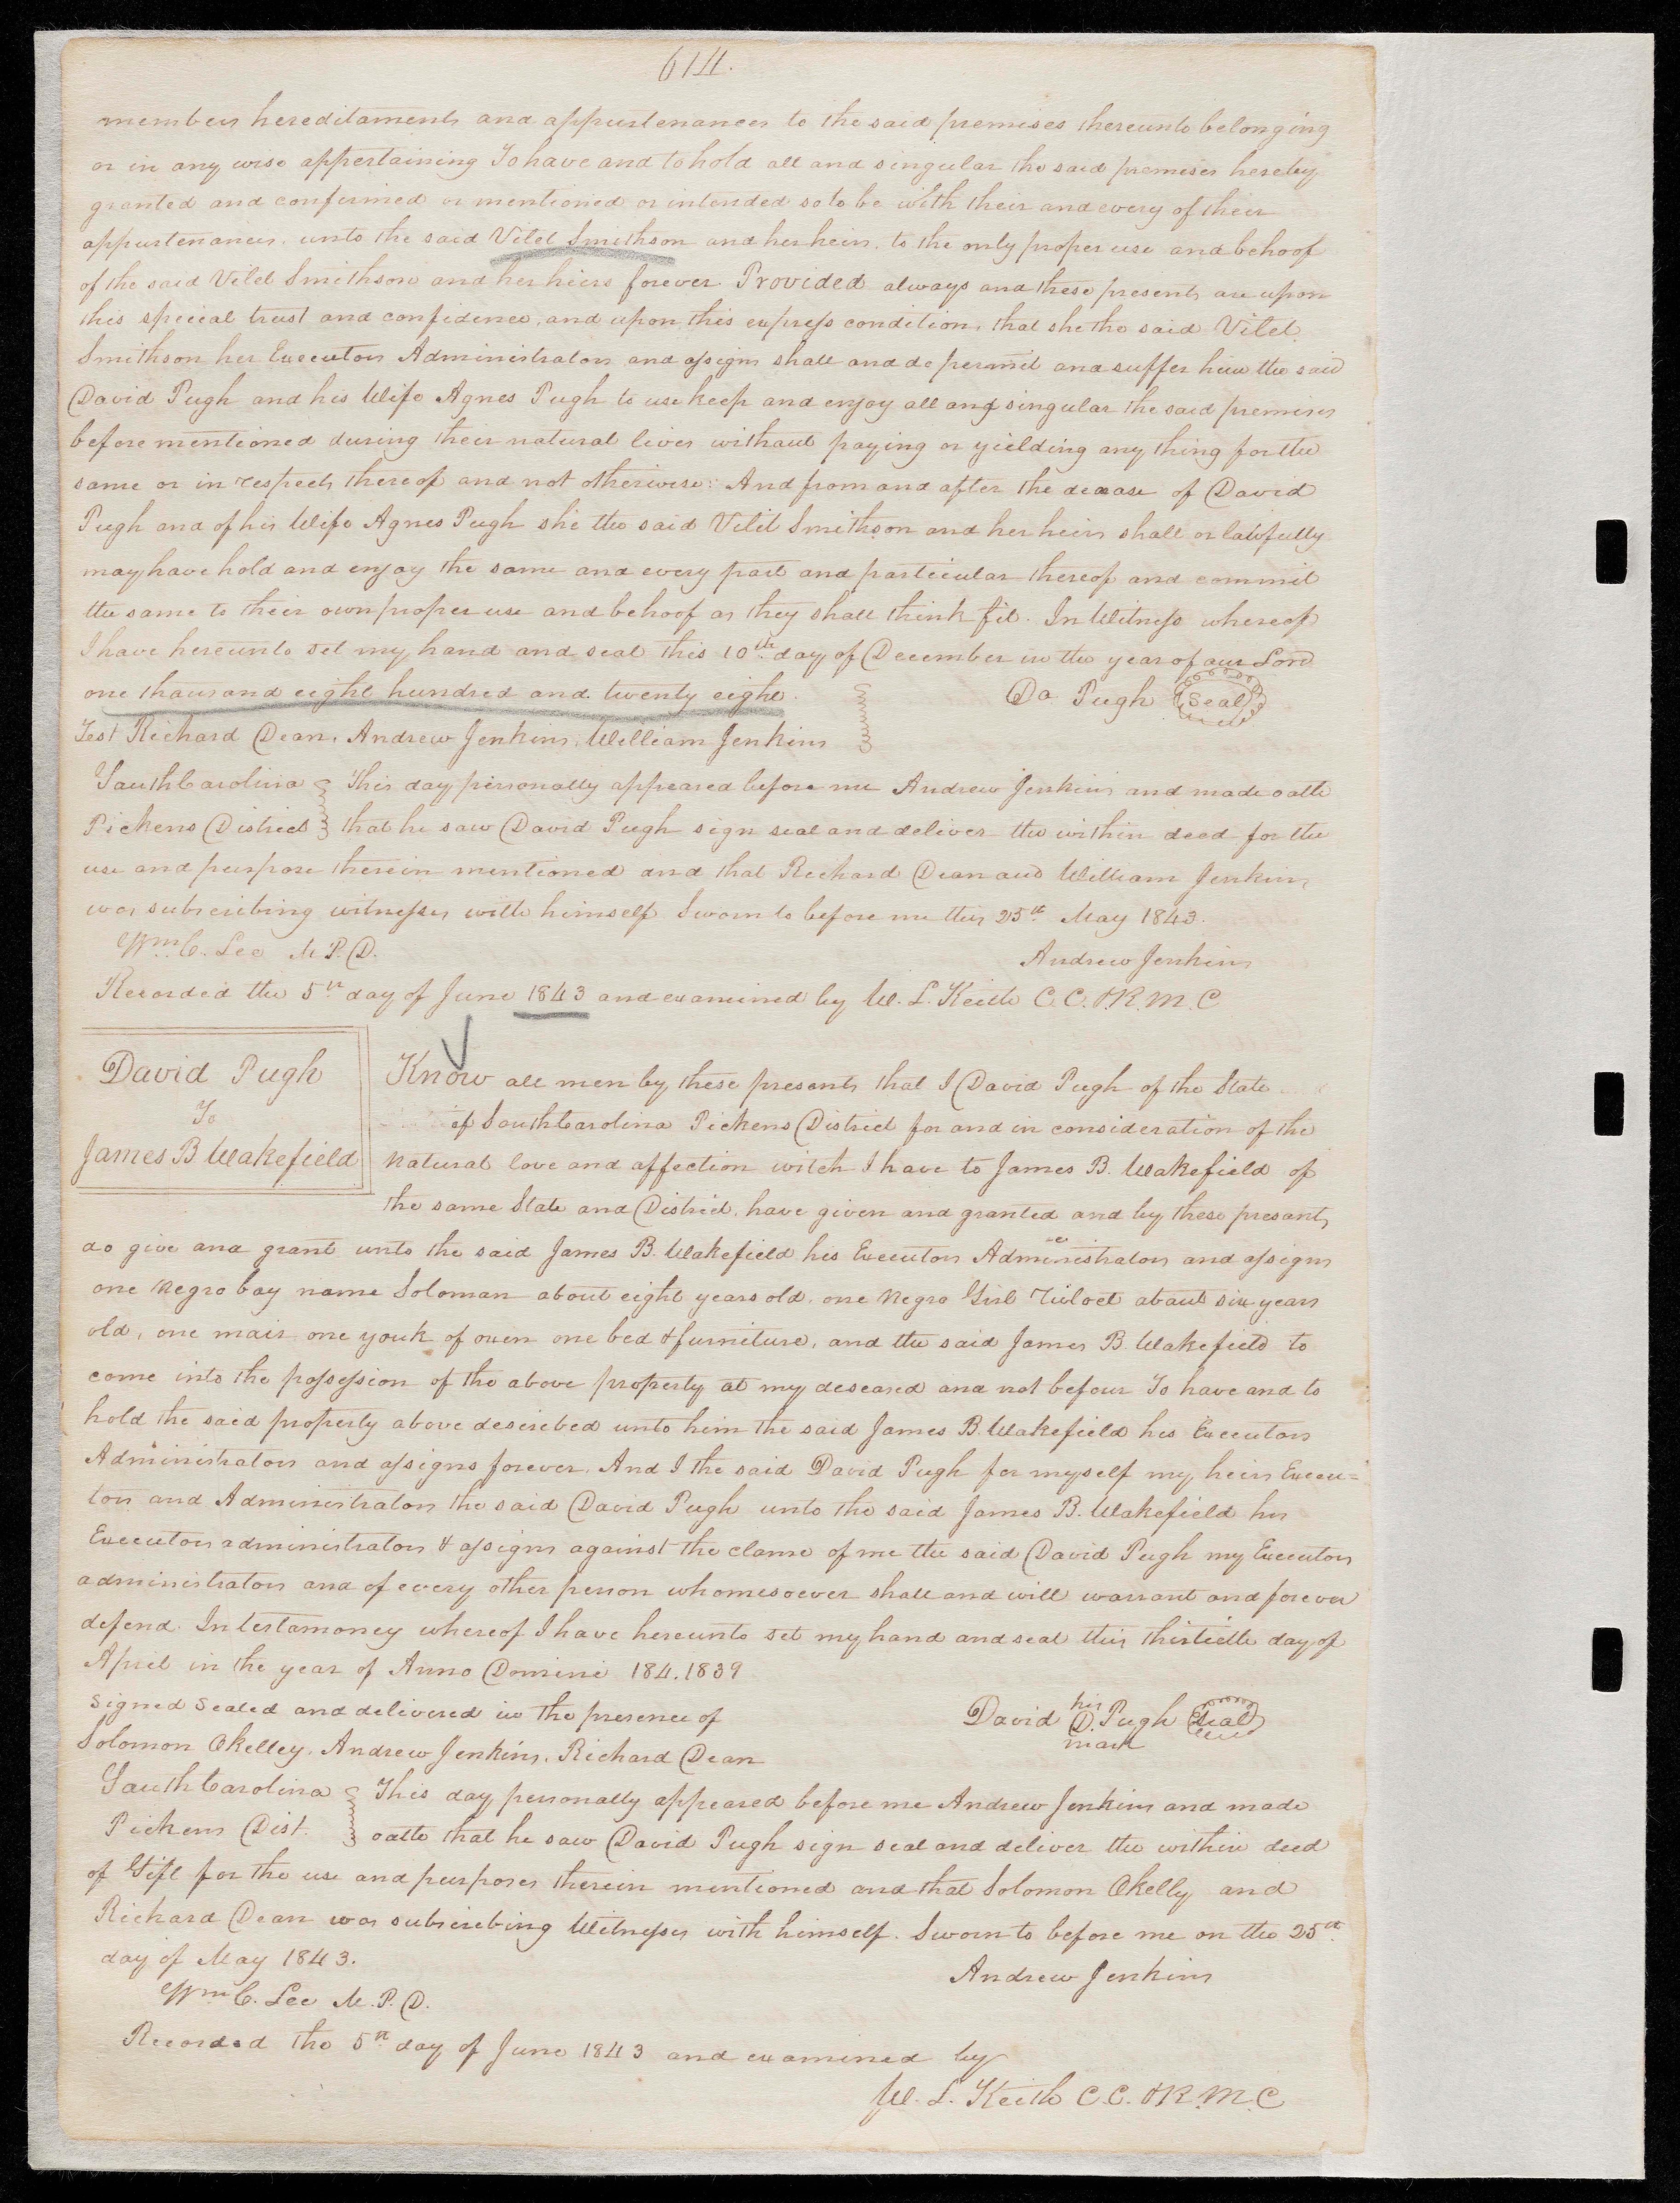 614.
members hereditaments and appurtenances to the said premises thereunto belonging
or in any wise appertaining To have and to hold all and singular the said premises hereby
granted and confirmed or mentioned or intended so to be with their and every of their
appurtenances. unto the said Vilet Smithson and her heirs, to the only proper use and behoof
of the said Vilet Smithson and her heirs forever. Provided always and these presents are upon
this special trust and confidence, and upon this express condition, that she the said Vilet
Smithson her Executors Administrators and assigns shall and do permit and suffer him the said
David Pugh and his Wife Agnes Pugh to use keep and enjoy all and singular the said premises
before mentioned during their natural lives without paying or yielding any thing for the
same or in respects thereof and not otherwise: And from and after the decease of David
Pugh and of his Wife Agnes Pugh she the said Vilit Smithson and her heirs shall or lawfully
may have hold and enjoy the same and every part and particular thereof and commit
the same to their own proper use and behoof as they shall think fit. In Witness whereof
I have hereunto set my hand and seal this 10th day of December in the year of our Lord
one thousand eight hundred and twenty eight.
Da Pugh Seal
Test Richard Dean, Andrew Jenkins, William Jenkins
South Carolina This day personally appeared before me Andrew Jenkins and made oath
Pickens District that he saw David Pugh sign seal and deliver the within deed for the
use and purpose therein mentioned and that Richard Dean and William Jenkins
was subscribing witnesses with himself Sworn to before me this 25th May 1843.
Wm C. Lee M.P.D.
Andrew Jenkins
Recorded the 5th day of June 1843 and examined by W. L. Keith C.C. & R.M.C
David Pugh
To
James B Wakefield
Know all men by these presents that I David Pugh of the State
of South Carolina Pickens District for and in consideration of the
natural love and affection witch I have to James B. Wakefield of
the same State and District, have given and granted and by these presants
do give and grant unto the said James B. Wakefield his Executors Administrators and assigns
one Negro boy name Soloman about eight years old, one Negro Girl about six years
old, one mair one youk of oxen one bed & furniture, and the said James B Wakefield to
come into the possession of the above property at my deseased and not befour To have and to
hold the said property above described unto him the said James B. Wakefield his Executors
Administrators and assigns forever. And I the said David Pugh for myself my heirs Execu=
tors and Administrators the said David Pugh unto the said James B. Wakefield his
Executors administrators & assigns against the clame of me the said David Pugh my Executors
administrators and of every other person whomesoever shall and will warrant and forever
defend. In testamoney whereof I have hereunto set my hand and seal this thirtieth day of
April in the year of Anno Domini 184.1839
Signed Sealed and delivered in the presence of
David his D. mark Pugh Seal
Solomon Okelley, Andrew Jenkins, Richard Dean
South Carolina This day personally appeared before me Andrew Jenkins and made
Pickens Dist. oath that he saw David Pugh sign seal and deliver the within deed
of Gift for the use and purposes therein mentioned and that Solomon Okelly and
Richard Dean was subscribing Witnesses with himself. Sworn to before me on the 25th
day of May 1843.
Andrew Jenkins
Wm C. Lee M.P.D.
Recorded the 5th day of June 1843 and examined by
W. L. Keith C.C. & R.M.C